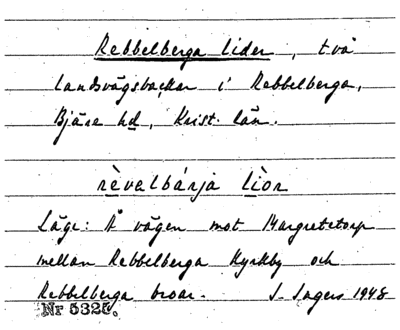 Rebbelberga lider, två
landsvägsbackar i Rebbelberga,
Bjäre hd, Krist. län.
rèvalbárja lìor
Läge: Å vägen mot Margretetorp
mellan Rebbelberga Kyrkby och
Rebbelberga broar. S. Ingers 1948
Nr 5325.